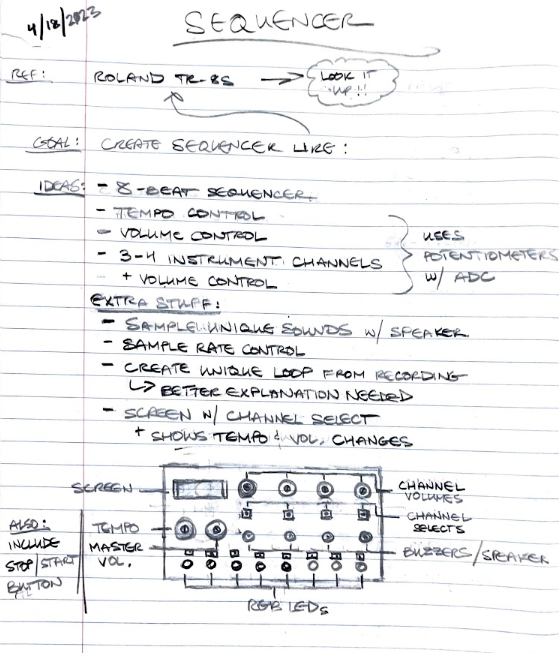 4/18/2023
SEQUENCER
REF: ROLAND TR-8S → LOOK IT UP!!
GOAL: CREATE SEQUENCER LIKE:
IDEAS: - 8-BEAT SEQUENCER
- TEMPO CONTROL
- VOLUME CONTROL
- 3-4 INSTRUMENT CHANNELS
+ VOLUME CONTROL
USES
POTENTIOMETERS
W/ ADC
EXTRA STUFF:
- SAMPLE UNIQUE SOUNDS W/ SPEAKER
- SAMPLE RATE CONTROL
- CREATE UNIQUE LOOP FROM RECORDING
↳ BETTER EXPLANATION NEEDED
- SCREEN W/ CHANNEL SELECT
+ SHOWS TEMPO & VOL. CHANGES
SCREEN
CHANNEL
VOLUMES
CHANNEL
SELECTS
TEMPO
MASTER
VOL.
BUZZERS/SPEAKER
ALSO:
INCLUDE
STOP/START
BUTTON
RGB LEDs